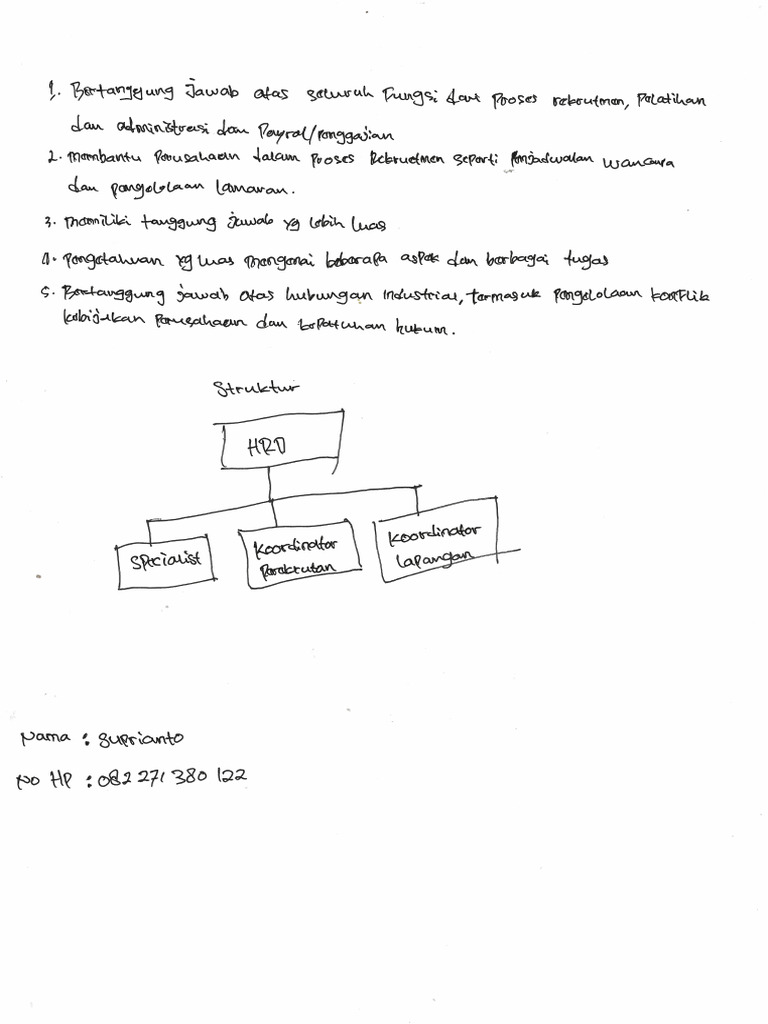 1. Bertanggung jawab atas seluruh fungsi dari proses rekrutmen, pelatihan
dan administrasi dan Payrol/penggajian
2. Membantu perusahaan dalam proses Rekruetmen seperti penjadwalan wancara
dan pengelolaan lamaran.
3. memiliki tanggung jawab yg lebih luas
4. pengetahuan yg luas mengenai beberapa aspek dan berbagai tugas
5. Bertanggung jawab atas hubungan industrial, termasuk pengelolaan konflik
kebijakan perusahaan dan kepatuhan hukum.
Struktur
HRD
Specialist
Koordinator
Perekrutan
Koordinator
Lapangan
Nama : Suprianto
No HP : 082 271 380 122